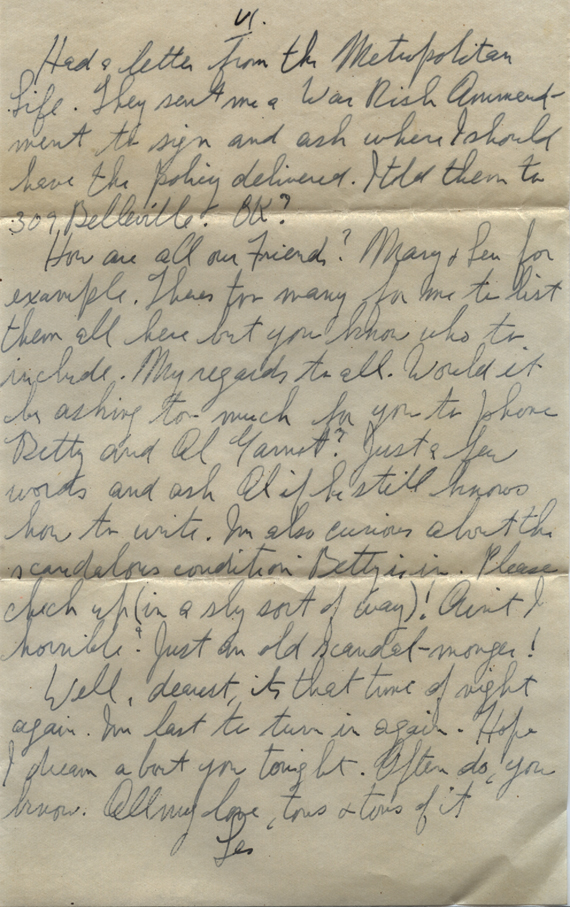 VI.
Had a letter from the Metropolitan
Life. They sent me a War Risk Ammend-
ment to sign and ask where I should
have the policy delivered. I told them to
309, Belleville. OK?
How are all our Friends? Mary & Len for
example. Theres too many for me to list
them all here but you know who to
include. My regards to all. Would it
be asking too much for you to phone
Betty and Al ? Just a few
words and ask Al if he still knows
how to write. Im also curious about the
scandalous condition Betty is in. Please
check up (in a sly sort of way)! Ain't I
horrible? Just an old scandal-monger!
Well, dearest, its that time of night
again. Im last to turn in again. Hope
I dream about you tonight. Often do, you
know. All my love, tons & tons of it
Les